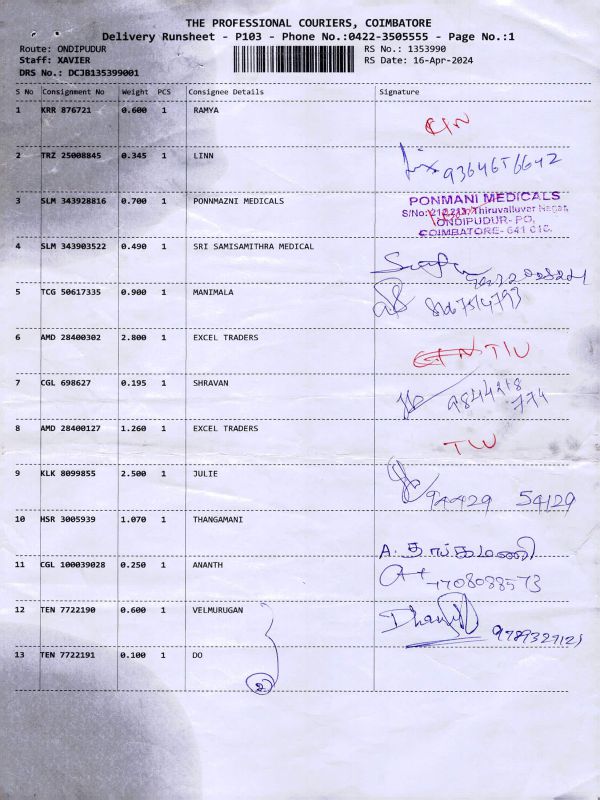 THE PROFESSIONAL COURIERS, COIMBATORE
Delivery Runsheet - P103 - Phone No.:0422-3505555 - Page No.:1
Route: ONDIPUDUR RS No.: 1353990
Staff: XAVIER RS Date: 16-Apr-2024
DRS No.: DCJB135399001
S No Consignment No Weight PCS Consignee Details Signature
1 KRR 876721 0.600 1 RAMYA
2 TRZ 25008845 0.345 1 LINN
3 SLM 343928816 0.700 1 PONNMAZNI MEDICALS PONMANI MEDICALS
S/No:212,213, Thiruvalluvar Nagar,
ONDIPUDUR- PO,
COIMBATORE- 641 016.
4 SLM 343903522 0.490 1 SRI SAMISAMITHRA MEDICAL
5 TCG 50617335 0.900 1 MANIMALA
6 AMD 28400302 2.800 1 EXCEL TRADERS
7 CGL 698627 0.195 1 SHRAVAN 9844218
774
8 AMD 28400127 1.260 1 EXCEL TRADERS
9 KLK 8099855 2.500 1 JULIE 94429 54129
10 HSR 3005939 1.070 1 THANGAMANI A. தங்கமணி
11 CGL 100039028 0.250 1 ANANTH 7708088573
12 TEN 7722190 0.600 1 VELMURUGAN
13 TEN 7722191 0.100 1 DO 2